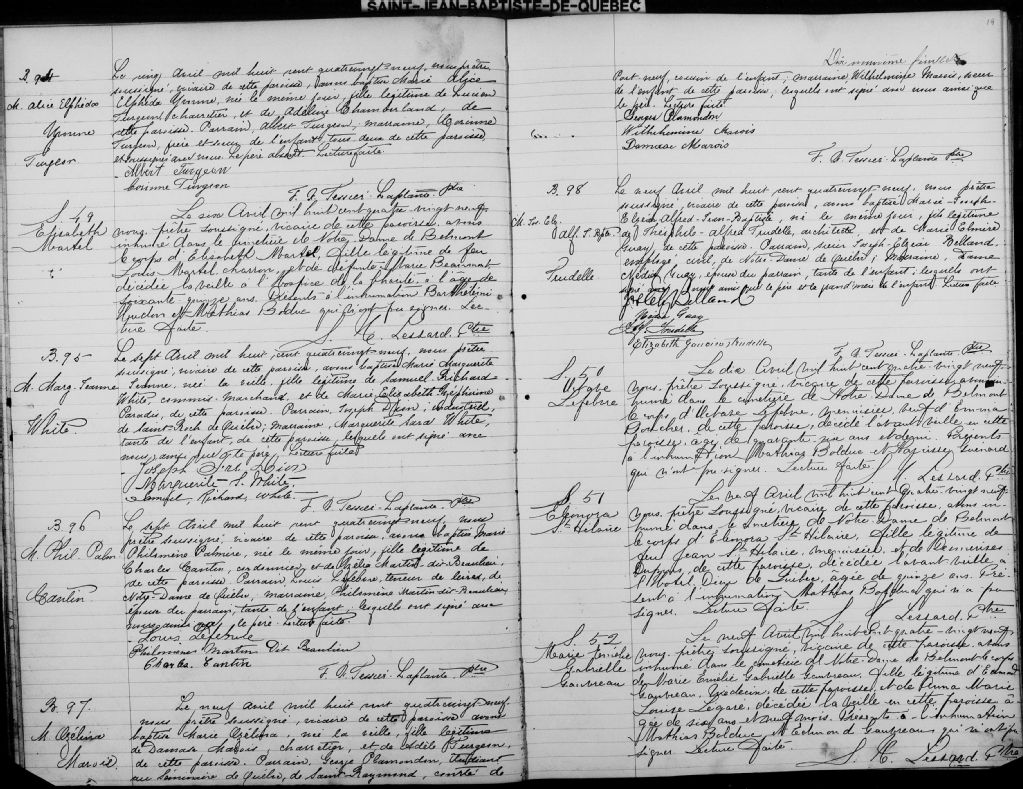 SAINT-JEAN-BAPTISTE-DE-QUEBEC
B. 94
M. Alice Elphida
Yvonne
Turgeon
Le cinq Avril mil huit cent quatrevingt-neuf, nous prêtre
soussigné, vicaire de cette paroisse, avons baptisé Marie Alice
Elphida Yvonne, née le même jour, fille légitime de Lucien
Turgeon, charretier, et de Adeline Chamberland, de
cette paroisse. Parrain, Albert Turgeon, marraine, Corinne
Turgeon, frère et sœur de l'enfant, tous deux de cette paroisse,
et soussignés avec nous. Le père absent. Lecture faite.
Albert Turgeon
Corinne Turgeon
F. G. Tessier-Laplante Ptre
S. 49
Elisabeth
Martel
Le six Avril mil huit cent quatre-vingt neuf,
nous, prêtre soussigné, vicaire de cette paroisse, avons
inhumé dans le cimetière de Notre Dame de Belmont
le corps d'Elisabeth Martel, fille légitime de feu
Louis Martel, charron, et de défunte Marie Beaumont,
décédée la veille à l'hospice de la charité, à l'âge de
soixante-quinze ans. Présents à l'inhumation Barthélémi
et Mathias Bolduc qui n'ont pu signer. Lec-
ture faite.
S. C. Lessard Ptre
B. 95
M. Marg. Jeanne
White
Le sept Avril mil huit cent quatrevingt-neuf, nous prêtre
soussigné, vicaire de cette paroisse, avons baptisé Marie Marguerite
Ivonne, née la veille, fille légitime de Samuel Richard
White, commis-marchand, et de Marie Elisabeth Zéphirine
Paradis, de cette paroisse. Parrain, Joseph Dion, industriel,
de Saint-Roch de Québec; marraine, Marguerite Sara White,
tante de l'enfant, de cette paroisse, lesquels ont signé avec
nous, ainsi que le père. Lecture faite.
Joseph Dion
Marguerite S. White
Samuel Richard White
F. G. Tessier-Laplante Ptre
B. 96
M. Phil. Palm
Cantin
Le sept Avril mil huit cent quatrevingt-neuf, nous
prêtre soussigné, vicaire de cette paroisse, avons baptisé Marie
Philomène Palmire, née le même jour, fille légitime de
Charles Cantin, cordonnier, et de Philéa Martin dit Beaulieu,
de cette paroisse. Parrain, Louis Lefebvre, teneur de livres, de
Notre-Dame de Québec, marraine, Philomène Martin dit Beaulieu,
épouse du parrain, tante de l'enfant, lesquels ont signé avec
nous ainsi que le père. Lecture faite.
Louis Lefebvre
Philomène Martin Dit Beaulieu
Charles Cantin
F. G. Tessier-Laplante Ptre
B. 97.
M. Exélina
Marois
Le neuf Avril mil huit cent quatrevingt-neuf,
nous prêtre soussigné, vicaire de cette paroisse avons
baptisé Marie Exélina, née la veille, fille légitime
de Damase Marois, charretier, et de Adèle Turgeon,
de cette paroisse. Parrain, George Plamondon, étudiant
au Séminaire de Québec, de Saint-Raymond, comté de
19
Dix neuvième feuillet
Port-neuf, cousin de l'enfant; marraine Wilhelmine Marois, sœur
de l'enfant, de cette paroisse; lesquels ont signé avec nous ainsi que
le père. Lecture faite
Georges Plamondon
Wilhelmine Marois
Damase Marois
F. G. Tessier-Laplante Ptre
B. 98
M. Jos. Elz.
Alf. J. Bpte
Trudelle
Le neuf Avril mil huit cent quatrevingt-neuf, nous prêtre
soussigné, vicaire de cette paroisse, avons baptisé Marie-Joseph-
Elzéar Alfred-Jean-Baptiste, né le même jour, fils légitime
de Théophile-Alfred Trudelle, architecte, et de Marie Elmire
Guay, de cette paroisse. Parrain, sieur Joseph-Elzéar Belland,
employé civil, de Notre-Dame de Québec; marraine, Dame
Guay, épouse du parrain, tante de l'enfant; lesquels ont
signé avec nous ainsi que le père et la grand'mère de l'enfant. Lecture faite
Belland
Guay
Trudelle
Elizabeth Gauvin Trudelle
F. G. Tessier-Laplante Ptre
S. 50
Octave
Lefebvre
Le dix Avril mil huit cent quatre-vingt-neuf
nous, prêtre soussigné, vicaire de cette paroisse, avons in-
humé dans le cimetière de Notre Dame de Belmont
le corps d'Octave Lefebvre, menuisier, veuf d'Emma
Boucher, de cette paroisse, décédé l'avant-veille en cette
paroisse, âgé de quarante-un ans et demi. Présents
à l'inhumation Mathias Bolduc et Narcisse Guénard
qui n'ont pu signer. Lecture faite.
S. C. Lessard Ptre
S. 51
Elénora
St Hilaire
Le neuf Avril mil huit cent quatre-vingt-neuf
nous, prêtre soussigné, vicaire de cette paroisse, avons in-
humé dans le cimetière de Notre-Dame de Belmont
le corps d'Elénora St Hilaire, fille légitime de
feu Jean St Hilaire, menuisier, et de
Dupuis, de cette paroisse, décédée l'avant-veille à
l'Hôtel Dieu de Québec, âgée de quinze ans. Pré-
sent à l'inhumation Mathias Bolduc qui n'a pu
signer. Lecture faite.
S. C. Lessard Ptre
S. 52
Marie Emélie
Gabrielle
Gauvreau
Le neuf Avril mil huit cent quatre-vingt-neuf
nous, prêtre soussigné, vicaire de cette paroisse, avons
inhumé dans le cimetière de Notre-Dame de Belmont le corps
de Marie Emélie Gabrielle Gauvreau, fille légitime d'Edmond
Gauvreau, médecin, de cette paroisse, et de Anna Marie
Louise Légaré, décédée la veille en cette paroisse, â-
gée de six ans et neuf mois. Présents à l'inhumation
Mathias Bolduc et Edmond Gauvreau qui n'a pu
signer. Lecture faite.
S. C. Lessard Ptre